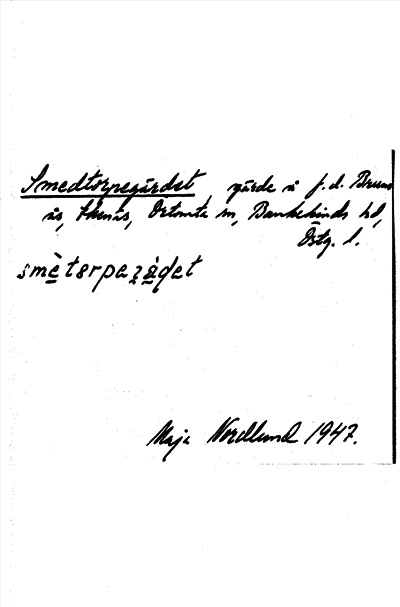 Smedtorpegärdet, gärde i f.d. Bruns
ås, Ekenäs, Örtomta sn, Bankekinds hd,
Östg. l.
smètɜrpaɀåɖet
Maja Nordlund 1947.